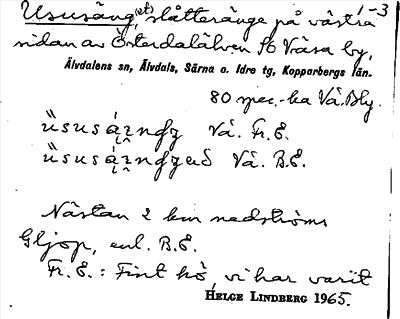 Ususäng, (et) slåtteränge på västra 1-3
sidan av Österdalälven so Våsa by,
Älvdalens sn, Älvdals, Särna o. Idre tg, Kopparbergs län.
80 spec.-ka Vå. Bly.
Vå. Fr. E.
Vå. B.E.
Nästan 2 km nedströms
Gljop, enl. B.E.
Fr. E.: Fint hö, vi har varit
HELGE LINDBERG 1965.